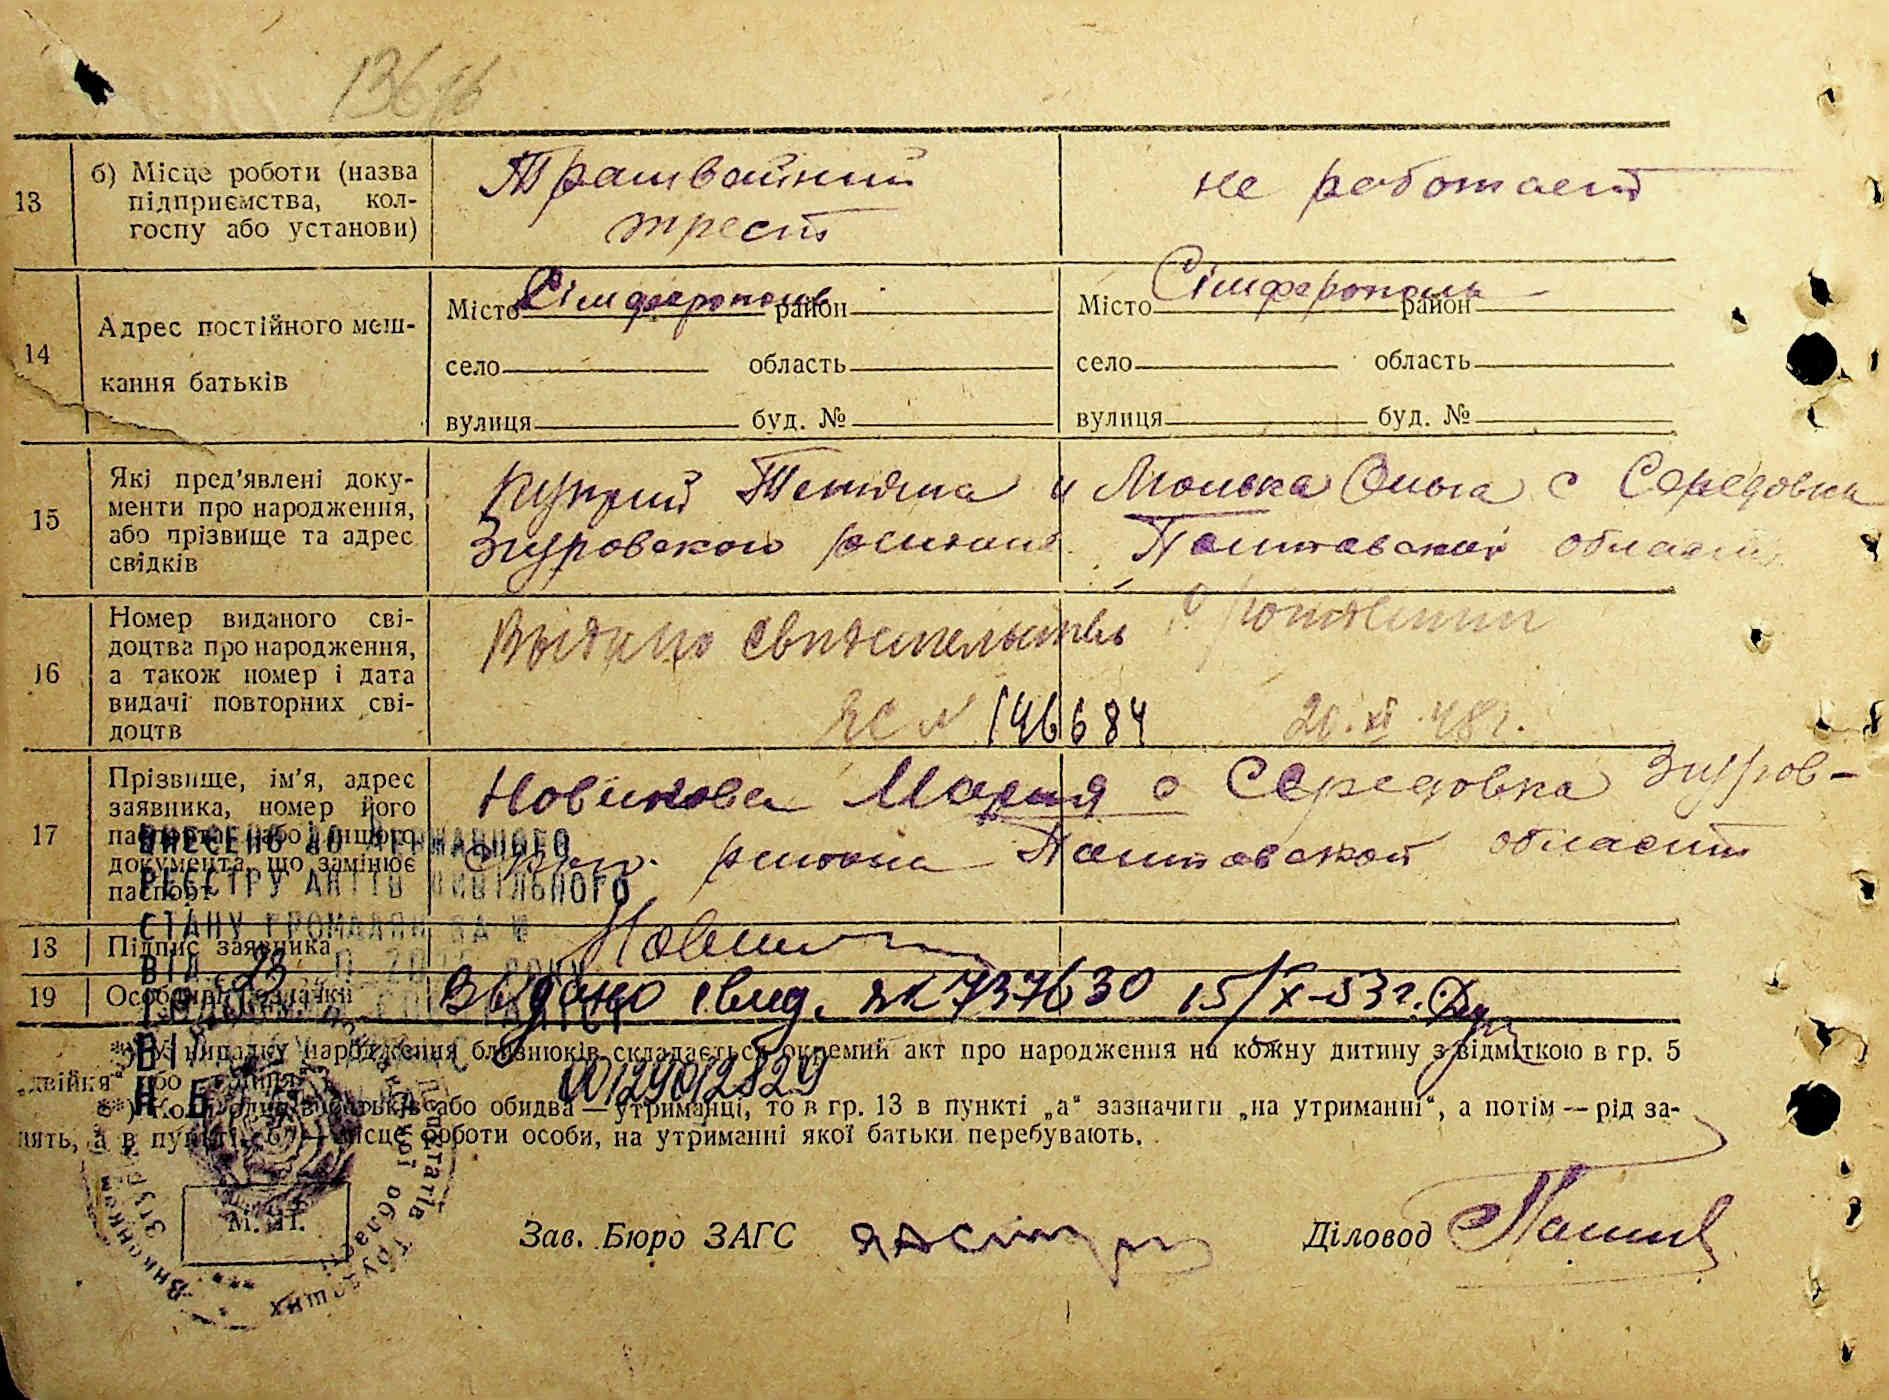 13
б) Місце роботи (назва
підприємства, кол-
госпу або установи)
Трамвайний
трест
не работает
14
Адрес постійного меш-
кання батьків
Місто Сімферополь район
село область
вулиця буд. №
Місто Сімферополь район
село область
вулиця буд. №
15
Які пред'явлені доку-
менти про народження,
або прізвище та адрес
свідків
Куприй Тетяна и Ольга с Середовка
Згуровского района Полтавской области
16
Номер виданого сві-
доцтва про народження,
а також номер і дата
видачі повторних сві-
доцтв
Выдано свидетельство о рождении
ЯС № 146684 XI 48 г.
17
Прізвище, ім'я, адрес
заявника, номер його
паспорта або іншого
документа, що замінює
паспорт
Новикова Мария с Середовка Згуров-
ского района Полтавской области
ВНЕСЕНО ДО ДЕРЖАВНОГО
РЕЄСТРУ АКТІВ ЦИВІЛЬНОГО
СТАНУ ГРОМАДЯН ЗА №
ВІД 23
00129012829
18
Підпис заявника
19
Особливі
Выдано свид. 737630 15/X-53 г.
*) У випадку народження близнюків складається окремий акт про народження на кожну дитину з відміткою в гр. 5
„двійня“ або
**) Коли один з батьків або обидва — утриманці, то в гр. 13 в пункті „а“ зазначити „на утриманні“, а потім — рід за-
нять, а в пункті „б“ — місце роботи особи, на утриманні якої батьки перебувають.
М. П.
Зав. Бюро ЗАГС
Діловод